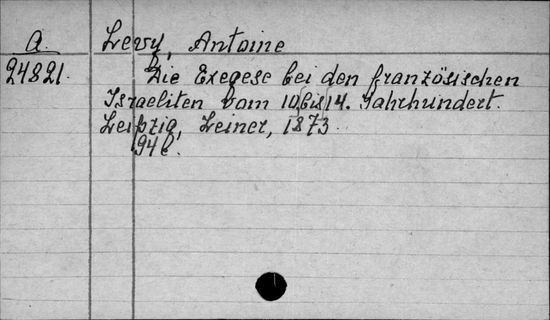 A. Levy, Antoine
24821. Die Exegese bei den französischen
Israeliten vom 10 bis 14. Jahrhundert.
Leipzig, Leiner, 1873
94 l.